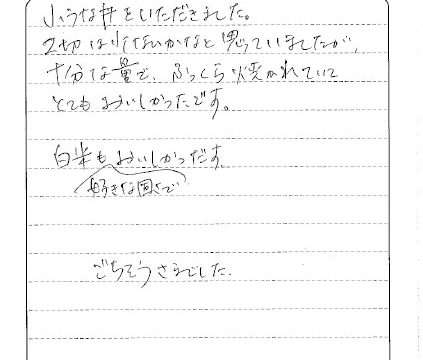 小うな丼をいただきました。
2切は少ないかなと思っていましたが、
十分な量で、ふっくら焼かれていて
とてもおいしかったです。
白米もおいしかったです
好きな固さで
ごちそうさまでした.